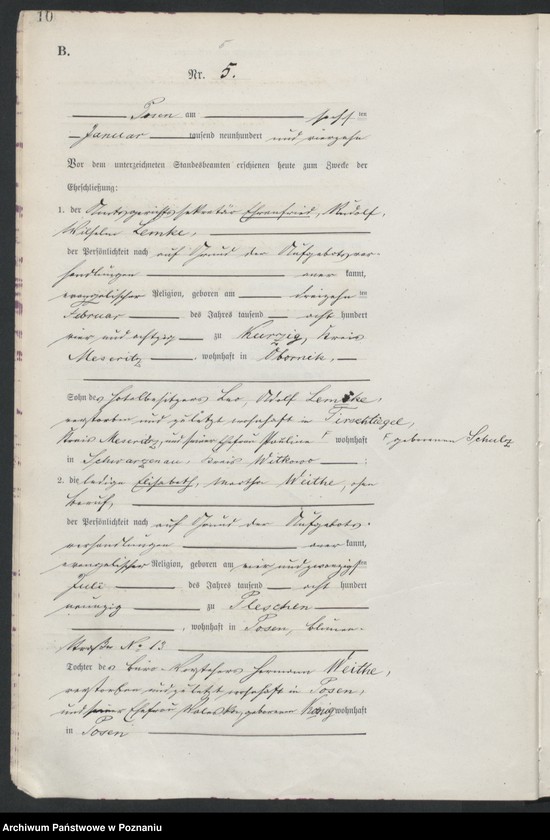 10
B.
Nr. 5.
Posen am sechsten
Januar tausend neunhundert und vierzehn
Vor dem unterzeichneten Standesbeamten erschienen heute zum Zwecke der
Eheschließung:
1. der Amtsgerichtssekretär Ehrenfried, Rudolf,
Wilhelm Lemke,
der Persönlichkeit nach auf Grund der Aufgebotsver-
handlungen aner kannt,
evangelischer Religion, geboren am dreizehnten
Februar des Jahres tausend acht hundert
vier und achtzig zu Kurzig, Kreis
Meseritz, wohnhaft in Obornik,
Sohn des Hotelbesitzers Leo, Adolf Lemke,
verstorben und zuletzt wohnhaft in Tirschtiegel,
Kreis Meseritz, und seiner Ehefrau Pauline ⌈ wohnhaft ⌈ geborenen Schulz
in Schwarzenau, Kreis Witkowo;
2. die ledige Elisabeth, Martha Weithe, ohne
Beruf,
der Persönlichkeit nach auf Grund der Aufgebots-
verhandlungen aner kannt,
evangelischer Religion, geboren am vier und zwanzigsten
Juli des Jahres tausend acht hundert
neunzig zu Pleschen
, wohnhaft in Posen, Blumen-
straße No 13
Tochter des Büro-Vorstehers Hermann Weithe,
verstorben und zuletzt wohnhaft in Posen,
und seiner Ehefrau Valeska, geborenen König wohnhaft
in Posen
Archiwum Państwowe w Poznaniu